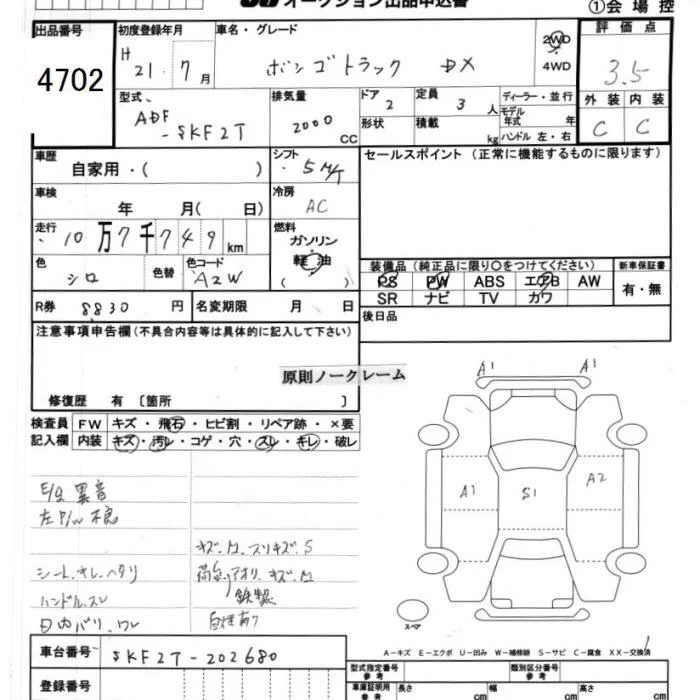 オークション出品申込書 ①会場控
出品番号 4702
初度登録年月 H 21年 7月
車名・グレード ボンゴトラック DX
2WD 4WD
評価点 3.5
外装 内装
C C
型式 ADF-SKF2T
排気量 2000 CC
ドア 2
形状
定員 3 人
積載 kg
ディーラー・並行
モデル年式 年
ハンドル 左・右
車歴 自家用・( )
シフト 5 M/T
セールスポイント (正常に機能するものに限ります)
車検 年 月( 日)
冷房 AC
走行 10万7千749km
燃料 ガソリン 軽油 ( )
色 シロ 色替
色コード A2W
装備品 (純正品に限り○をつけてください)
PS PW ABS エアB AW
SR ナビ TV カワ
新車保証書 有・無
R券 8830円
名変期限 月 日
後日品
注意事項申告欄 (不具合内容等は具体的に記入して下さい)
原則ノークレーム
修復歴 有 〔箇所 〕
検査員記入欄
FW キズ・飛石・ヒビ割・リペア跡・×要
内装 キズ・汚レ・コゲ・穴・スレ・キレ・破レ
E/g 異音
左P/W 不良
シートキレ、ヘタリ
ハンドル、スレ
日内バリ、ワレ
キズ.M.スリキズ.S
荷台.アオリ.キズ.M
鉄製
白煙有り
A1 A1
A1 S1 A2
スペア
A-キズ E-エクボ U-凹み W-補修跡 S-サビ C-腐食 XX-交換済
車台番号 SKF2T-202680
登録番号
型式指定番号 参考
類別区分番号 参考
車庫証明用 参考 長さ cm 幅 cm 高さ cm